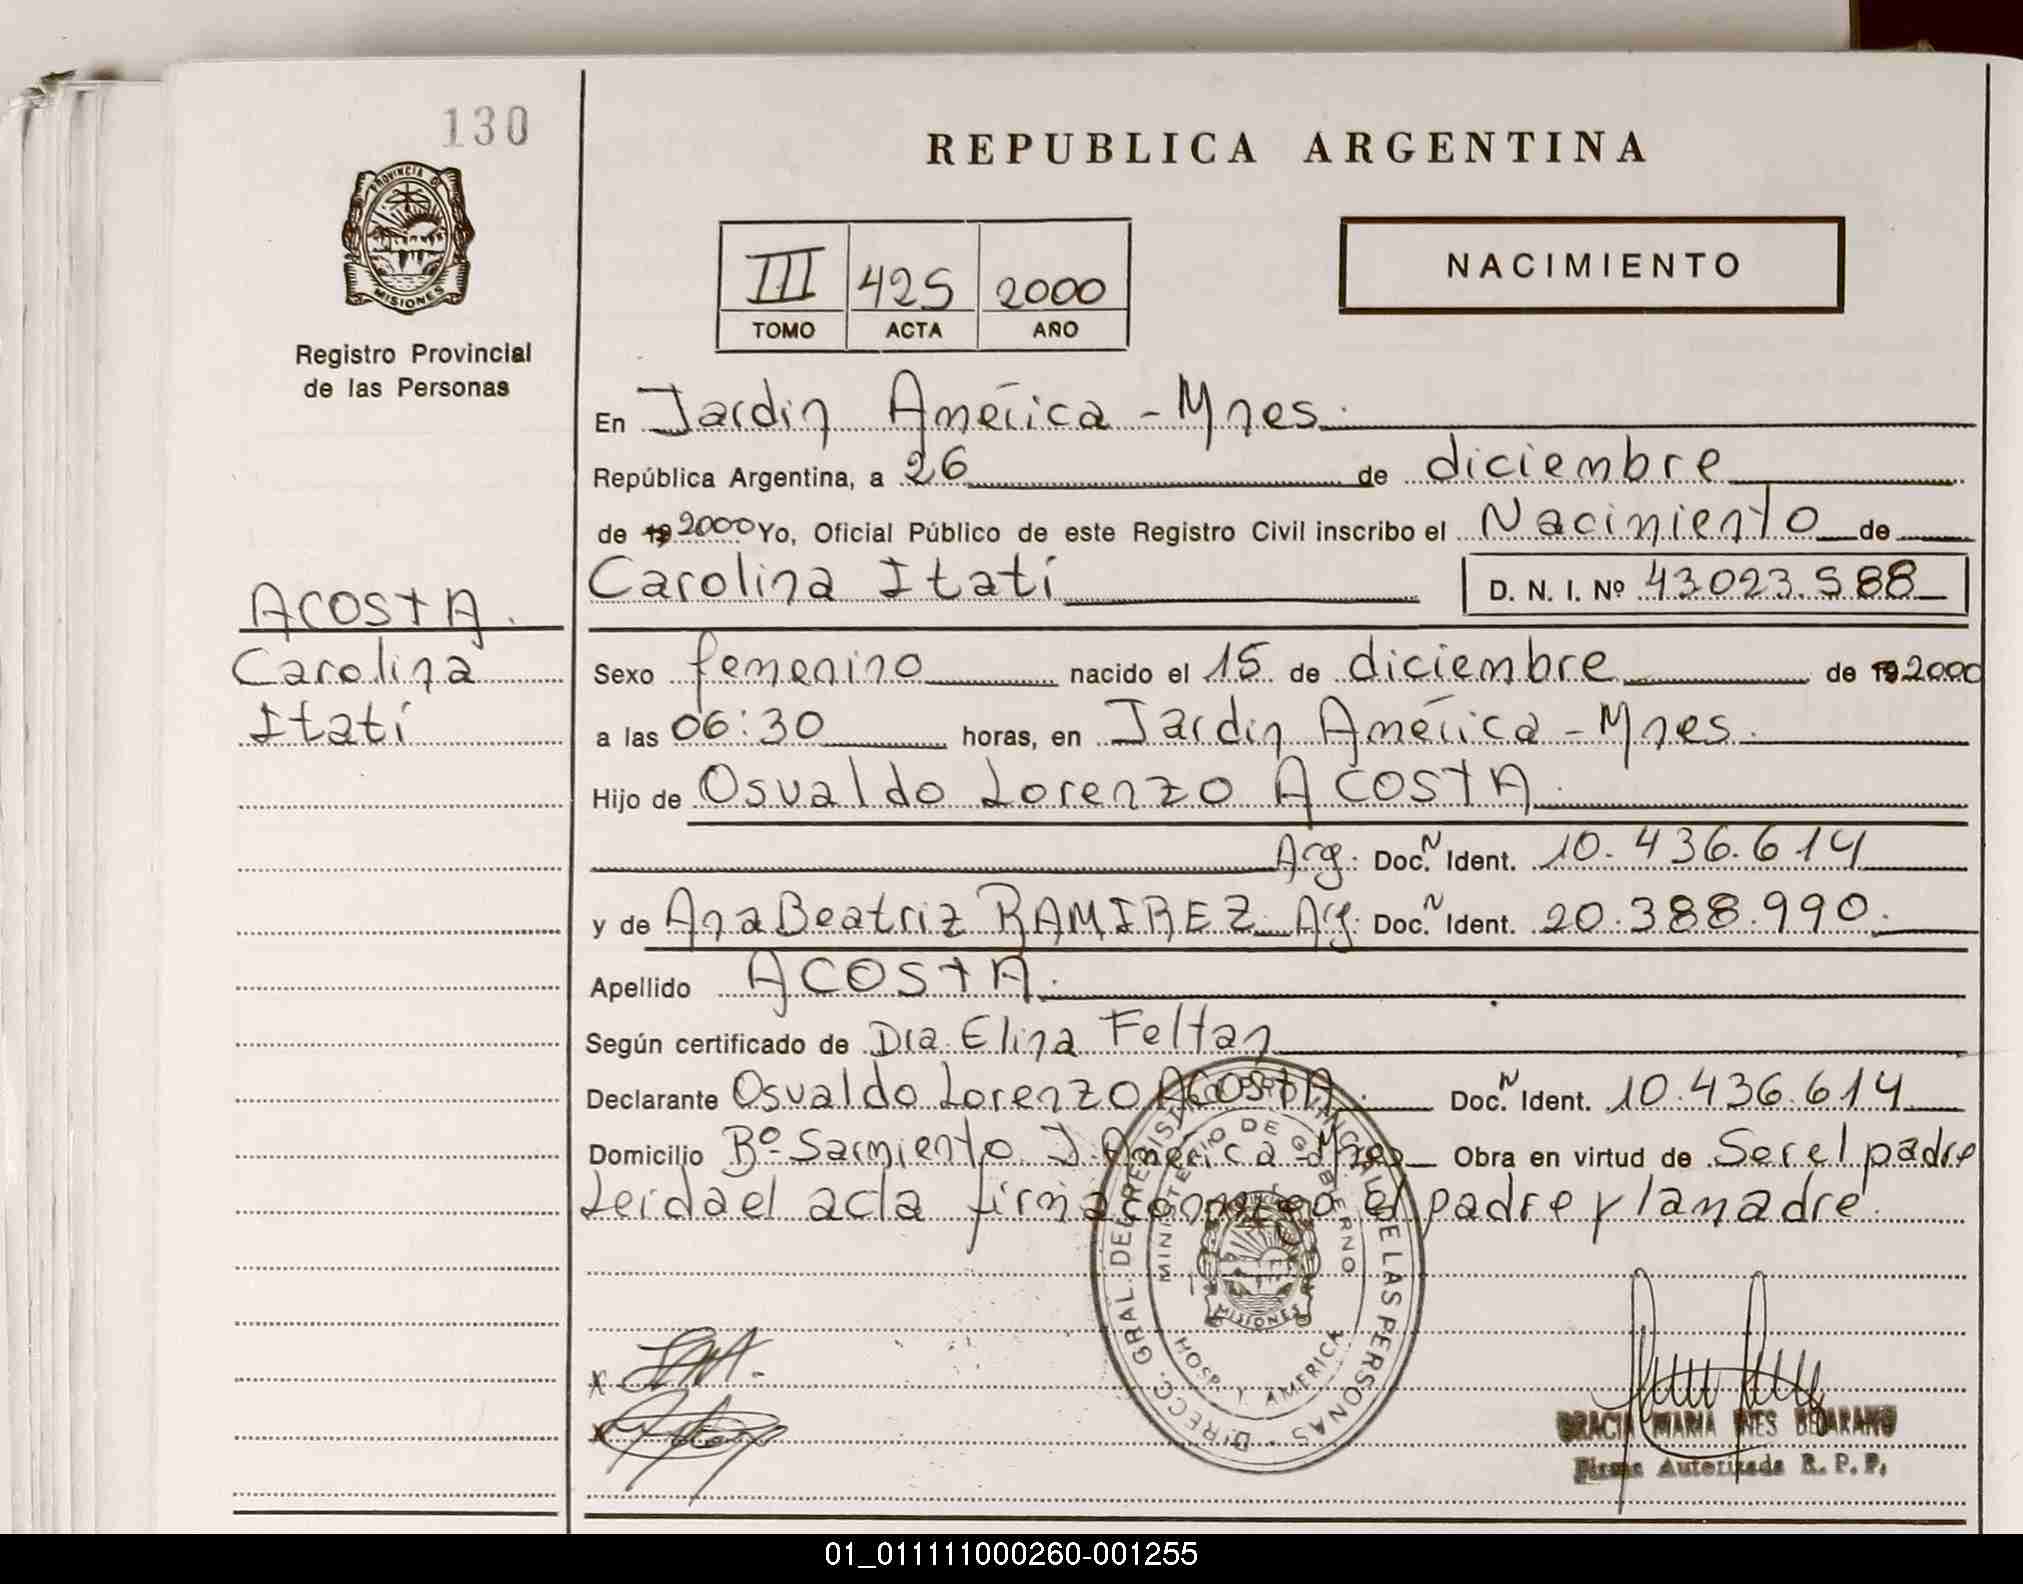 130
REPUBLICA ARGENTINA
PROVINCIA DE MISIONES
Registro Provincial
de las Personas
III 425 2000
TOMO ACTA AÑO
NACIMIENTO
En Jardin América - Mnes.
República Argentina, a 26 de diciembre
de 19 2000 Yo, Oficial Público de este Registro Civil inscribo el Nacimiento de
Carolina Itatí D. N. I. Nº 43.023.588
ACOSTA.
Carolina
Itatí
Sexo femenino nacido el 15 de diciembre de 19 2000
a las 06:30 horas, en Jardin América - Mnes.
Hijo de Osvaldo Lorenzo ACOSTA.
Arg. Doc. N Ident. 10.436.614
y de Ana Beatriz RAMIREZ Arg. Doc. N Ident. 20.388.990.
Apellido ACOSTA.
Según certificado de Dra. Elina Feltan
Declarante Osvaldo Lorenzo ACOSTA. Doc. N Ident. 10.436.614
Domicilio Bº Sarmiento J. América - Mnes Obra en virtud de Ser el padre
Leida el acta firma conmigo el padre y la madre.
DIRECC. GRAL. DEL REGISTRO PROVINCIAL DE LAS PERSONAS
MINISTERIO DE GOBIERNO
MISIONES
HOSP. J. AMERICA
x
x
GRACIA MARIA INES BEJARANO
Firma Autorizada R. P. P.
01_011111000260-001255